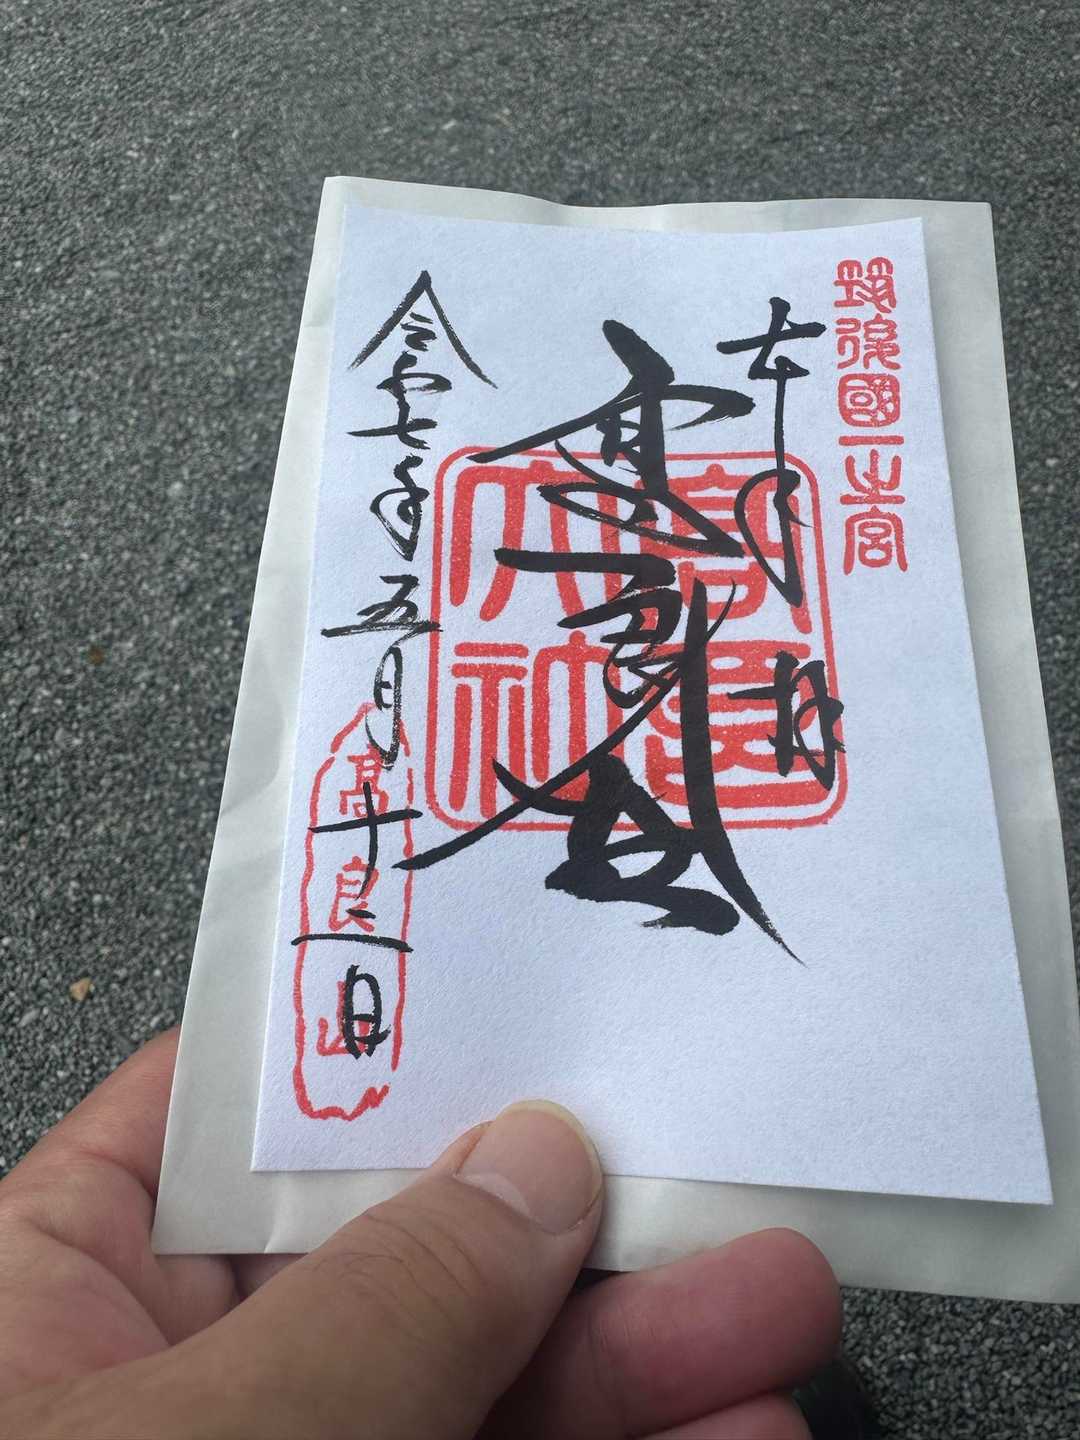 筑後國一之宮
奉拝
高良大社
令和七年五月十二日
高良山